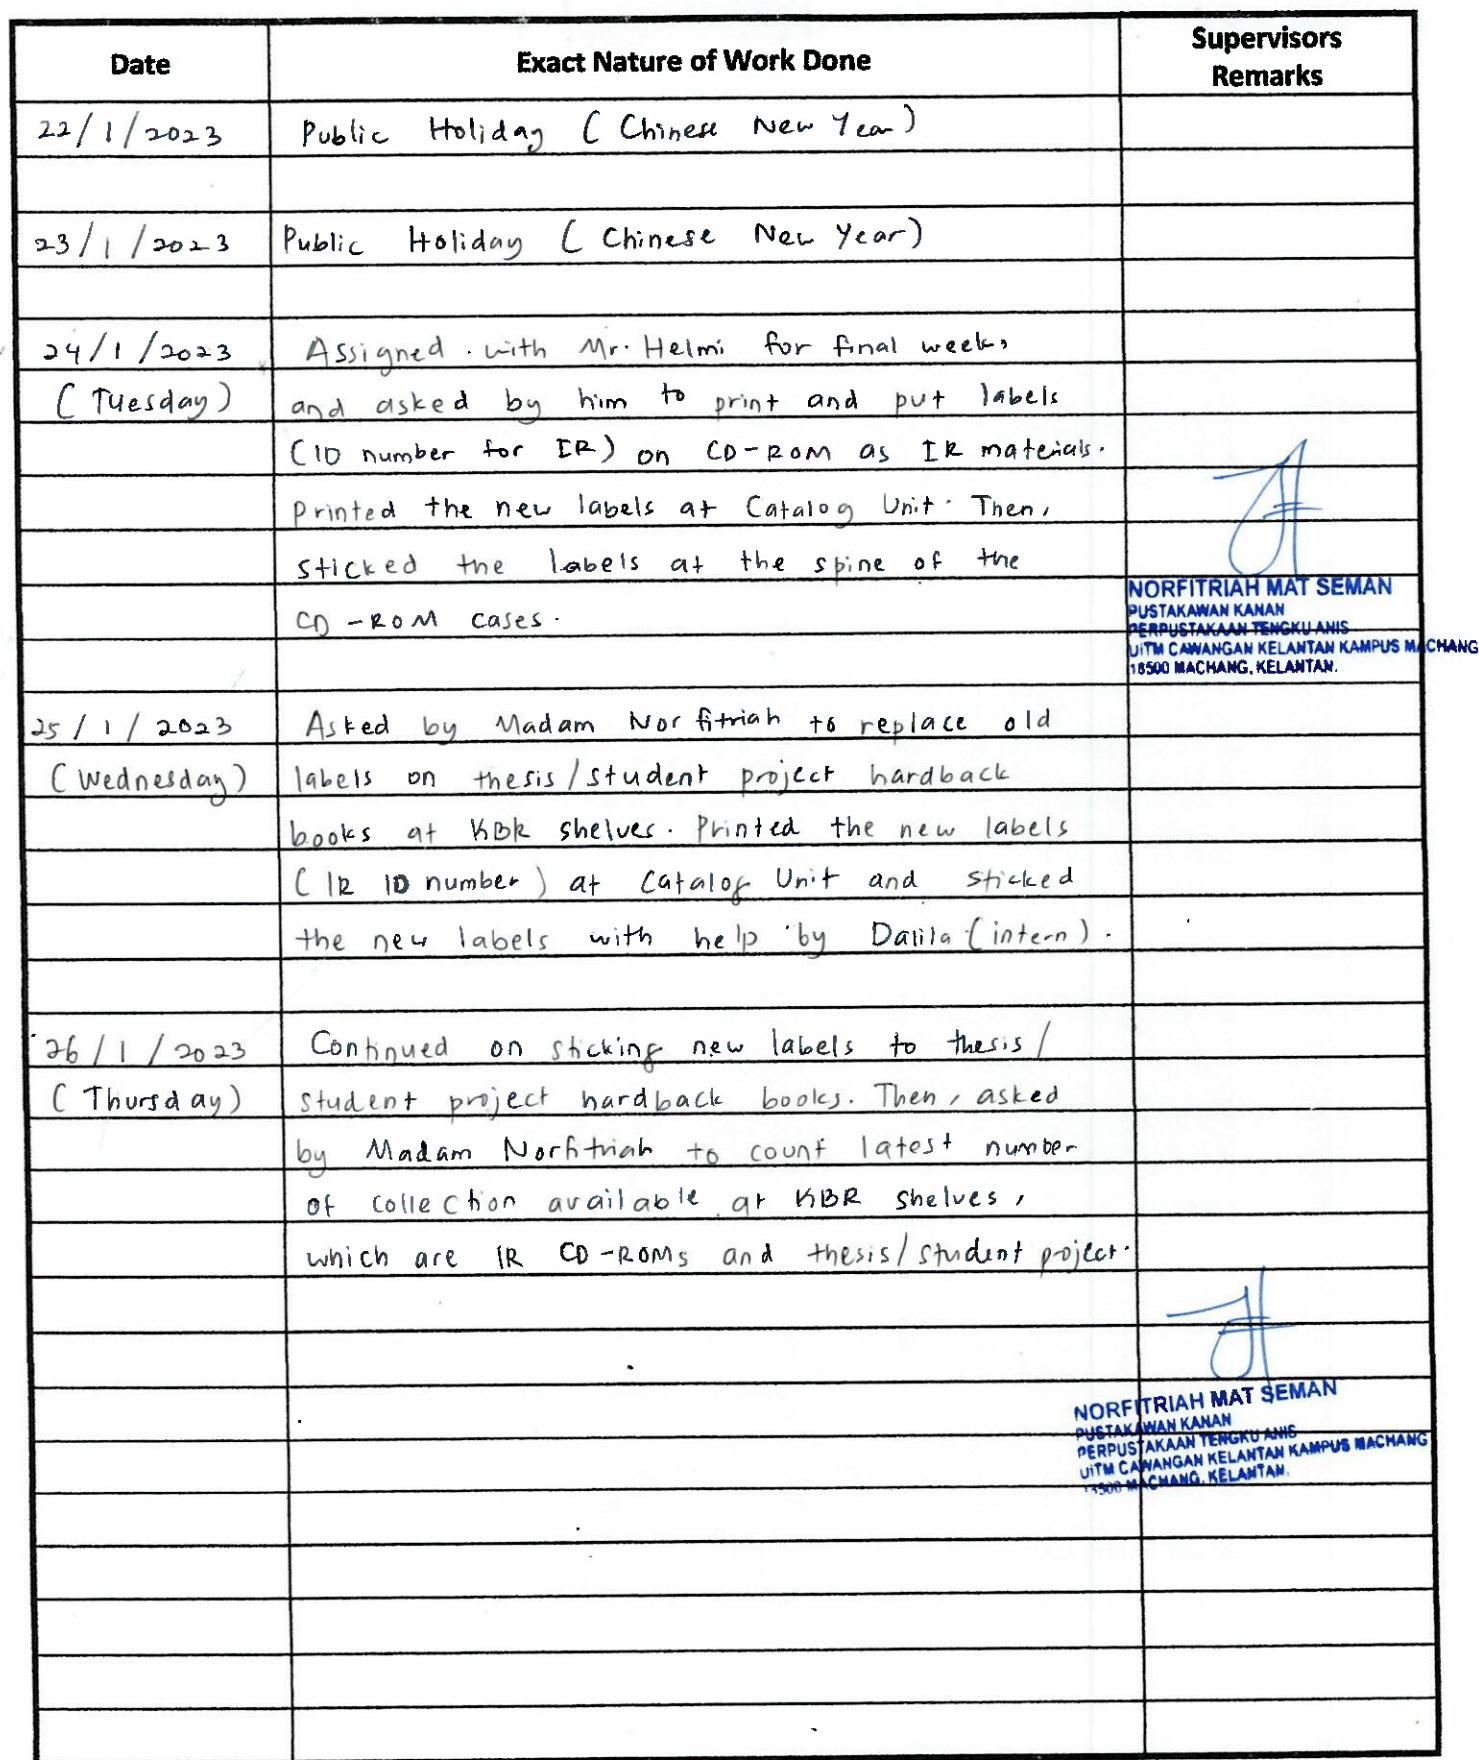 Date Exact Nature of Work Done Supervisors Remarks
22/1/2023 Public Holiday (Chinese New Year)
23/1/2023 Public Holiday (Chinese New Year)
24/1/2023 Assigned with Mr. Helmi for final week,
(Tuesday) and asked by him to print and put labels
(ID number for IR) on CD-ROM as IR materials.
Printed the new labels at Catalog Unit. Then,
sticked the labels at the spine of the
CD-ROM cases.
NORFITRIAH MAT SEMAN
PUSTAKAWAN KANAN
PERPUSTAKAAN TENGKU ANIS
UiTM CAWANGAN KELANTAN KAMPUS MACHANG
18500 MACHANG, KELANTAN.
25/1/2023 Asked by Madam Norfitriah to replace old
(Wednesday) labels on thesis/student project hardback
books at KBR shelves. Printed the new labels
(IR ID number) at Catalog Unit and sticked
the new labels with help by Dalila (intern).
26/1/2023 Continued on sticking new labels to thesis/
(Thursday) student project hardback books. Then, asked
by Madam Norfitriah to count latest number
of collection available at KBR shelves,
which are IR CD-ROMs and thesis/student project.
NORFITRIAH MAT SEMAN
PUSTAKAWAN KANAN
PERPUSTAKAAN TENGKU ANIS
UiTM CAWANGAN KELANTAN KAMPUS MACHANG
18500 MACHANG, KELANTAN.